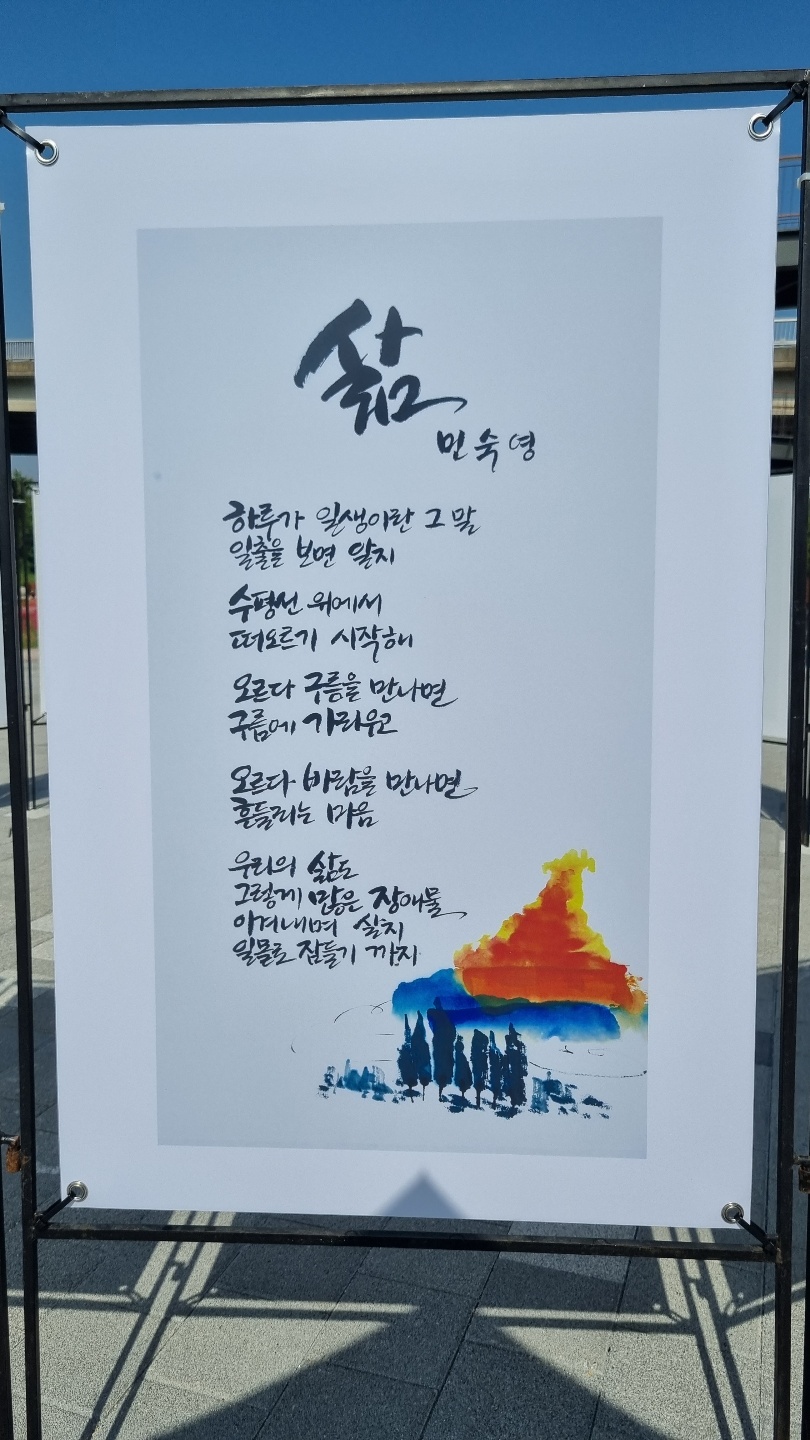 삶
민숙영
하루가 일생이란 그 말
일출을 보면 알지
수평선 위에서
떠오르기 시작해
오르다 구름을 만나면
구름에 가리우고
오르다 바람을 만나면
흔들리는 마음
우리의 삶도
그렇게 많은 장애물
이겨내며 살지
일몰로 잠들기 까지